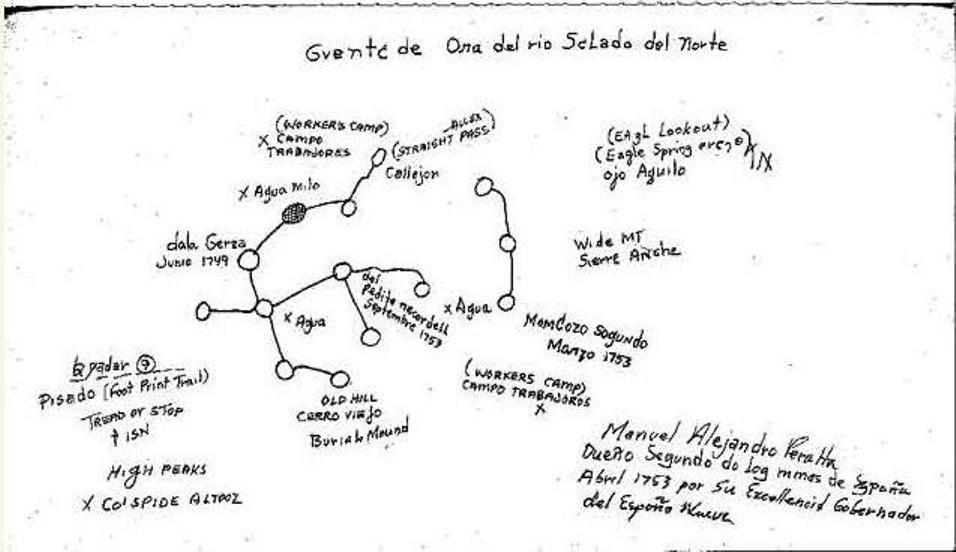 Gvente de Ora del rio Selado del Norte
(WORKER'S CAMP)
X CAMPO
TRABADORES
ALLEX
(STRAIGHT PASS)
Callejon
(EAgL Lookout)
(Eagle Spring
ojo Aguilo
X Agua Milo
dala Gerza
Junio 1749
Wide MT
Sierre Anche
del
Pedite necordell
Septembre 1753
X Agua
X Agua
MomCozo Sogundo
Manzo 1753
Pisado (Foot Print Trail)
TREAD OR STOP
ISN
(WORKERS CAMP)
CAMPO TRABAJOROS
X
OLD HILL
CERRO VIEJO
Burial Mound
HIGH PEAKS
X COISPIDE ALTOOZ
Manuel Alejandro Peralta
Dueño Segundo do log mmas de España
Abril 1753 por Su Excellencid Gobernador
del Españo Nueve